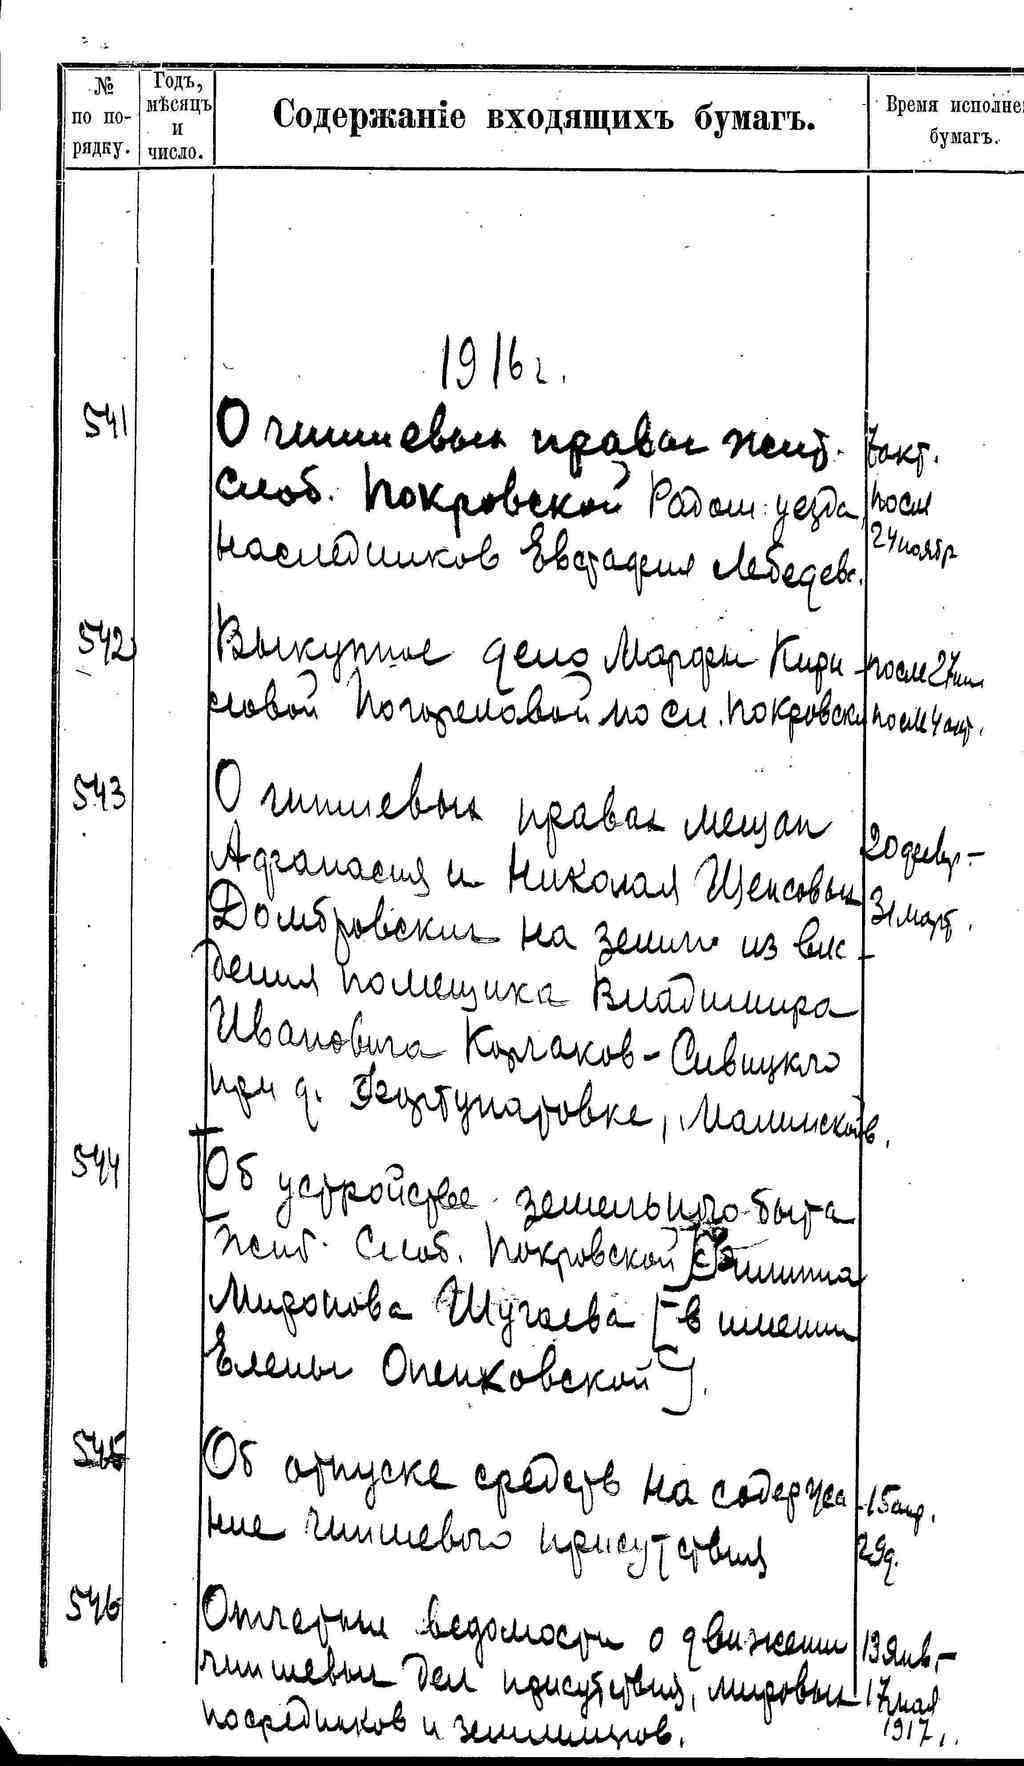 № по порядку.
Годъ, мѣсяцъ и число.
Содержаніе входящихъ бумагъ.
Время исполне
бумагъ.
1916 г.
541
О чиншевых правах жит.
7 окт.
слоб. Покровской Радом. уезда,
после
наследников Евстафия Лебедева.
24 ноябр
542
Выкупное дело Марфы Кири
после 27
ловой Погореловой по сл. Покровск
после 4 окт.
543
О чиншевых правах мещан
Афанасия и Николая
20 февр. –
Домбровских на землю из вла-
31 март.
дения помещика Владимира
Ивановича Корчаков-Сивицкго
при д. Фортунатовке, Малинской в.
544
Об устройстве земельного быта
жит. Слоб. Покровской
Миронова Шугаева [в имении
Елены Опенховской].
545
Об отпуске средств на содержа
– 15 апр.
ние чиншевого присутствия
29 д.
546
Отчетные ведомости о движении
13 янв. –
чиншевых дел присутствия, мировых
17 мая
посредников и землемеров.
1917 г.